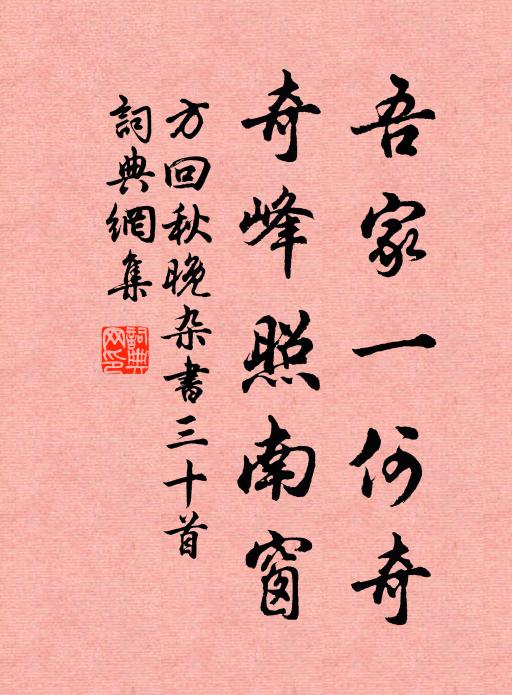 吾家一何奇
奇峰照南窗
方回秋晚杂書三十首
詞典網集
詞典網印